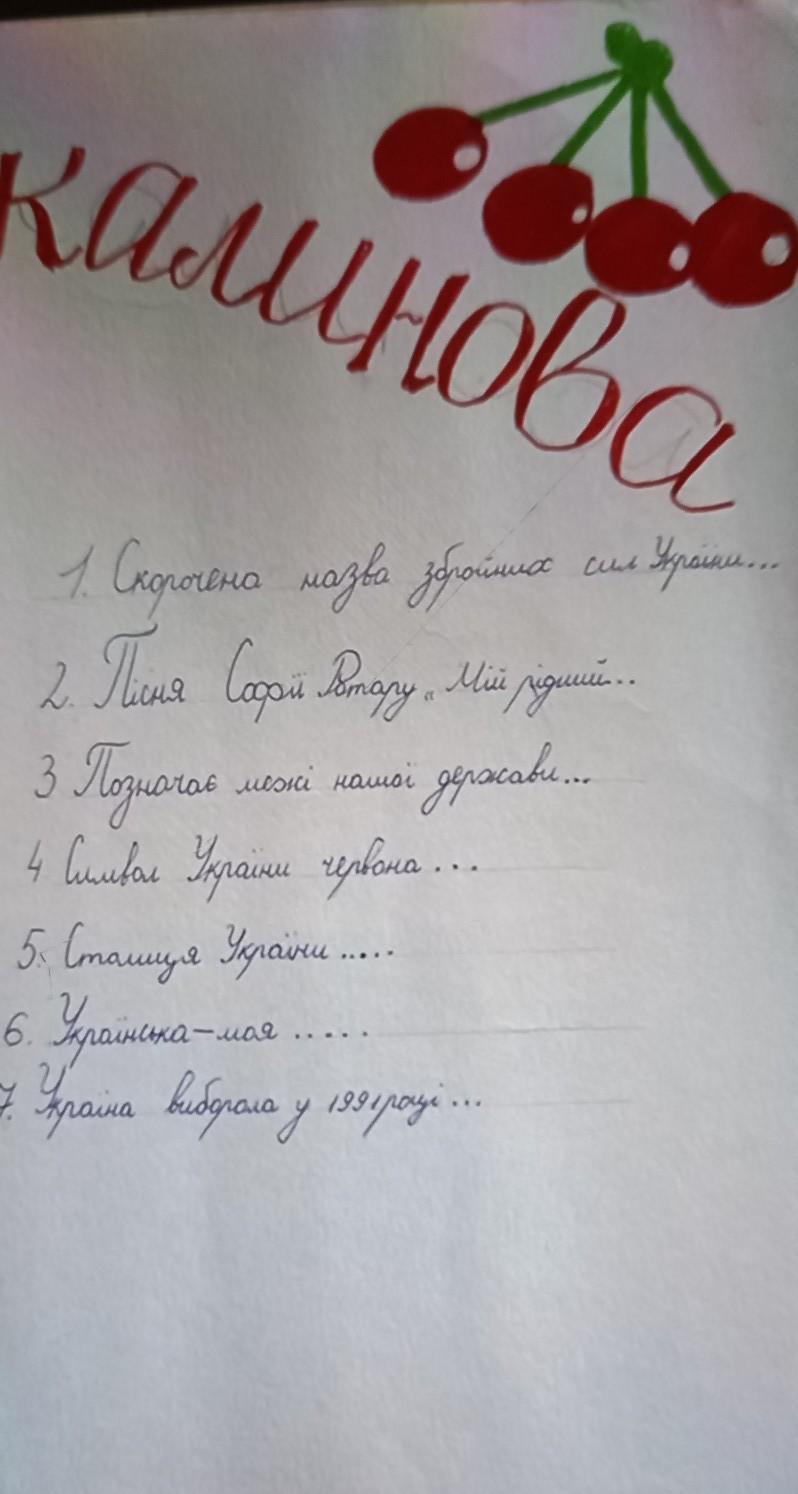 калинова
1. Скорочена назва збройних сил України...
2. Пісня Софії Ротару „Мій рідний...
3 Позначає межі нашої держави...
4 Символ України червона...
5. Столиця України.....
6. Українська-моя.....
7. Україна виборола у 1991 році...